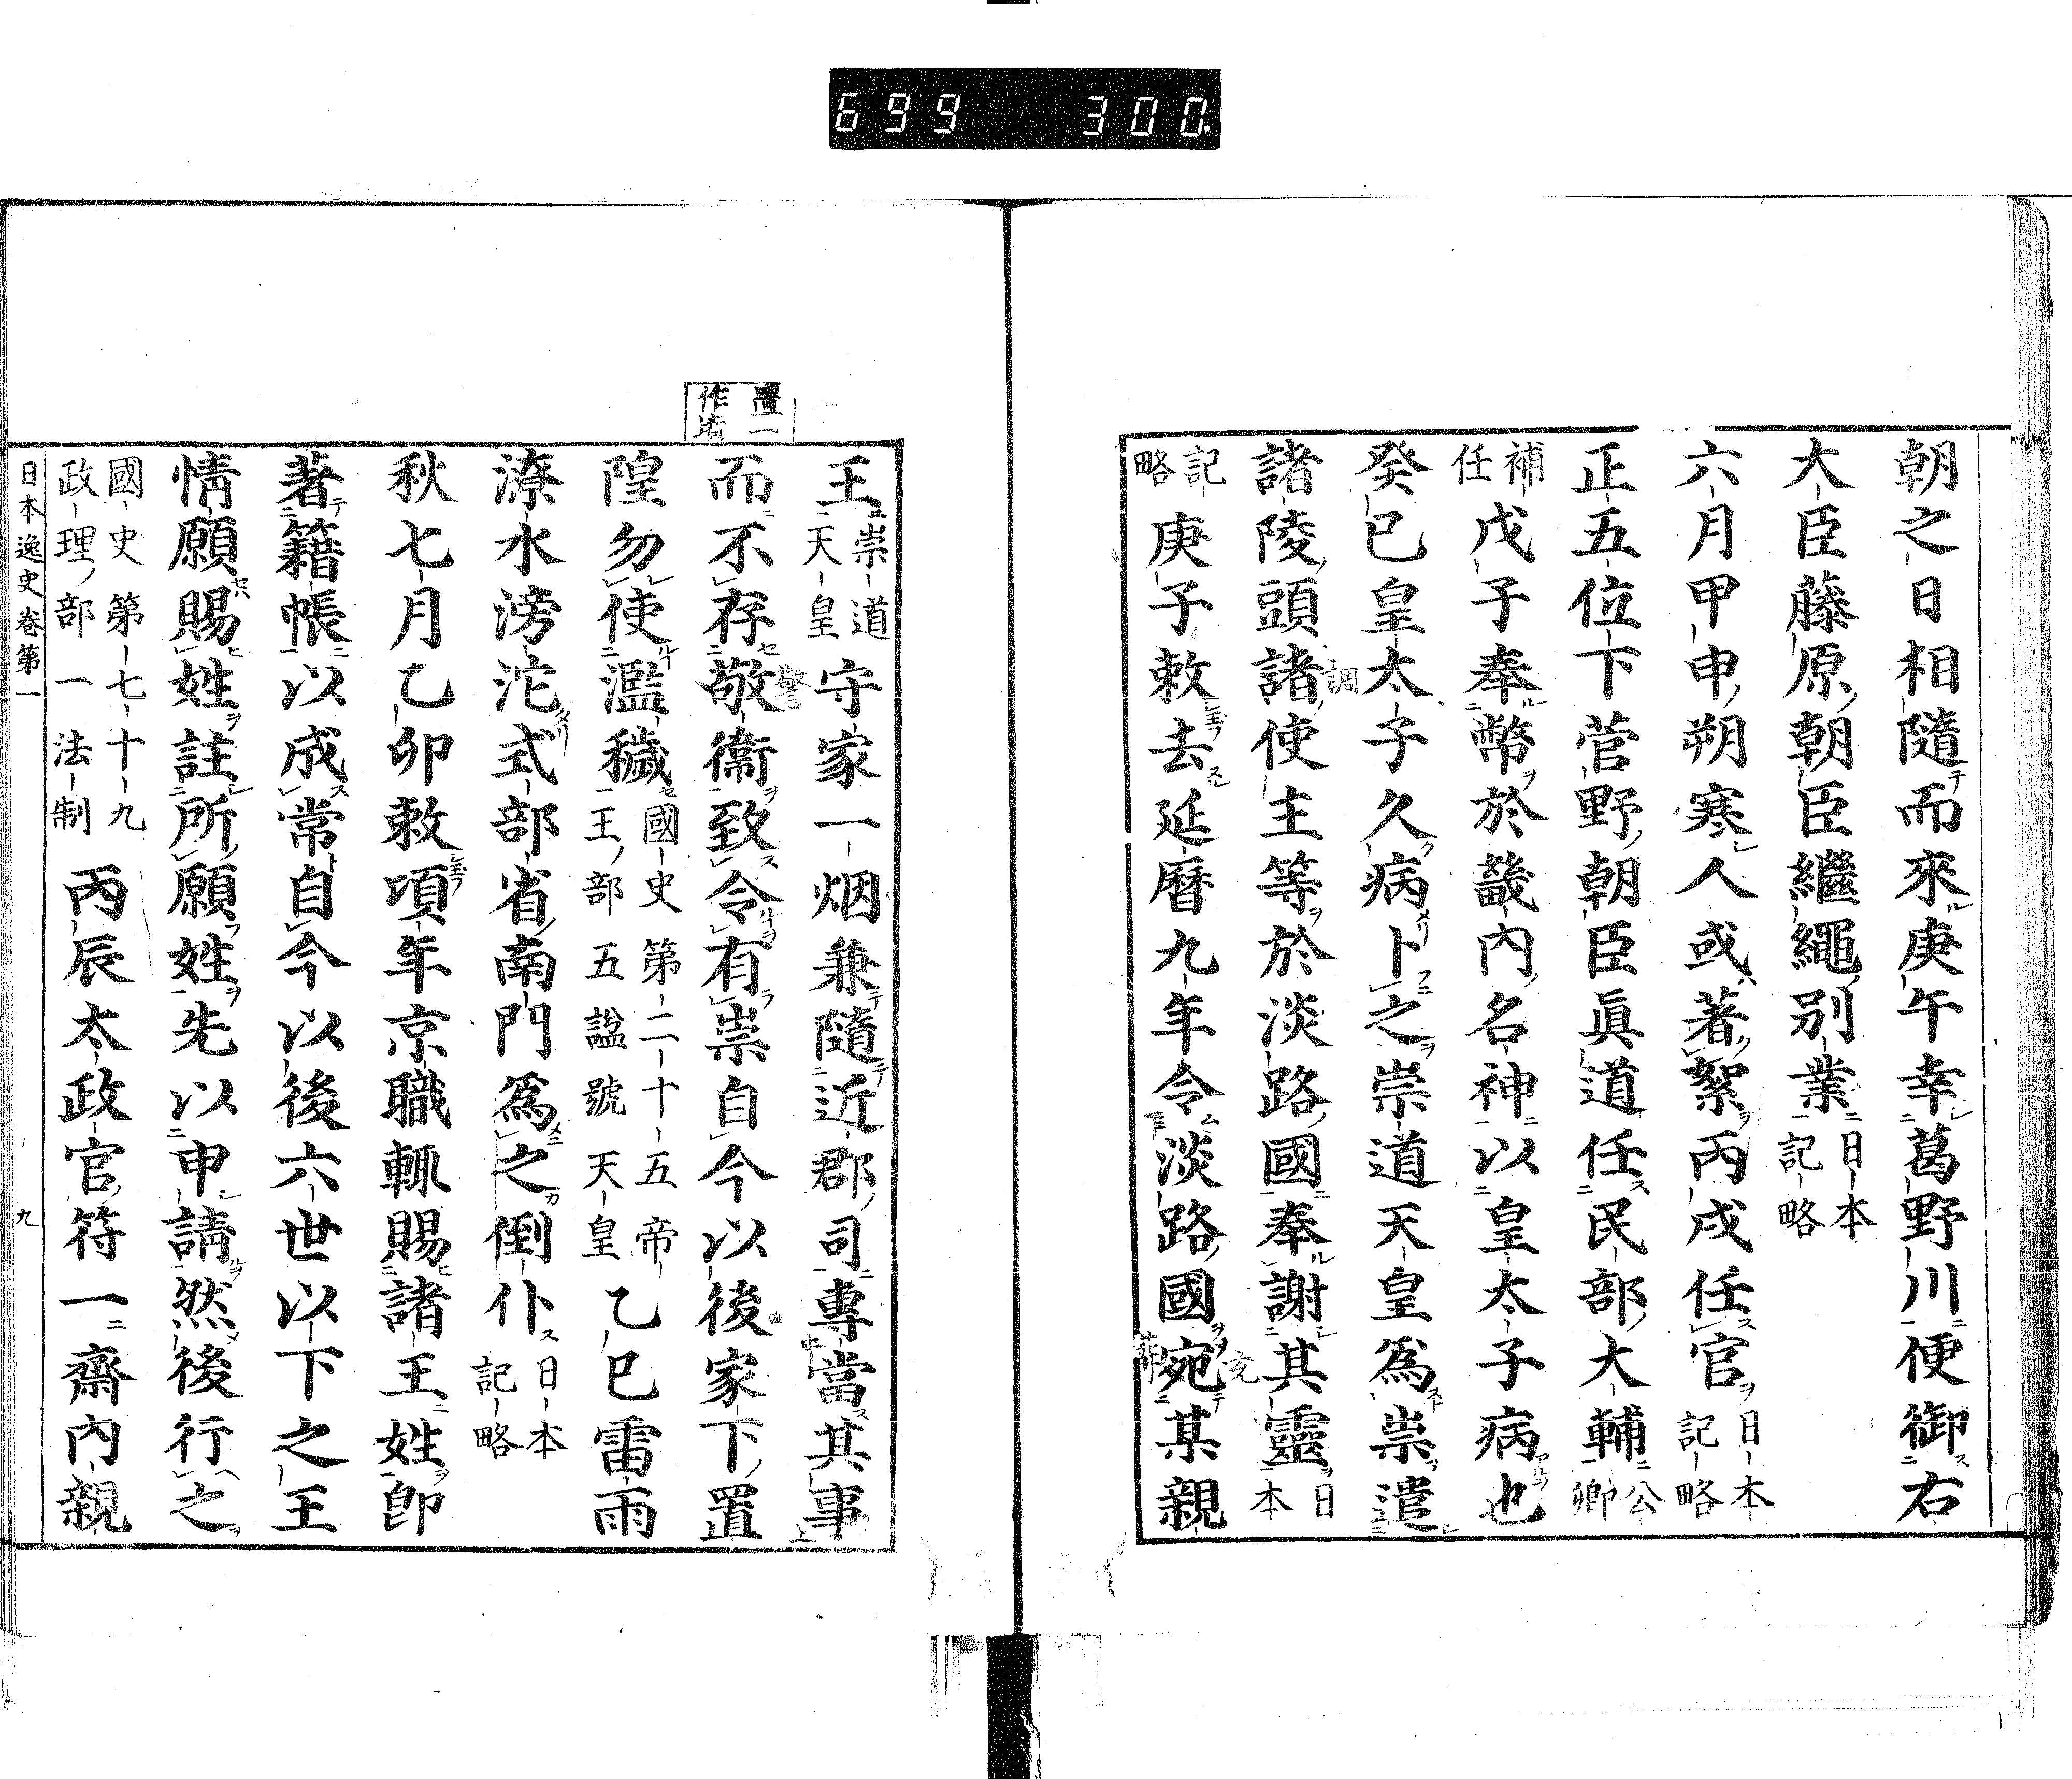 699 300.
朝之日相隨而來庚午幸葛野川便御右
大臣藤原朝臣繼繩別業日本記略
六月甲申朔寒人或著絮丙戌任官日本記略
正五位下菅野朝臣眞道任民部大輔公卿
補任戊子奉幣於畿內名神以皇太子病也
癸巳皇太子久病卜之崇道天皇爲祟遣
諸陵頭諸使主等於淡路國奉謝其靈日本
記略庚子敕去延曆九年令淡路國宛某親
王崇道天皇守家一烟兼隨近郡司專當其事
而不存敬衞致令有祟自今以後家下置
隍勿使濫穢國史第二十五帝王部五諡號天皇乙巳雷雨
潦水滂沱式部省南門爲之倒仆日本記略
秋七月乙卯敕頃年京職輙賜諸王姓卽
著籍帳以成常自今以後六世以下之王
情願賜姓註所願姓先以申請然後行之
國史第七十九政理部一法制丙辰太政官符一齋內親
日本逸史卷第一 九